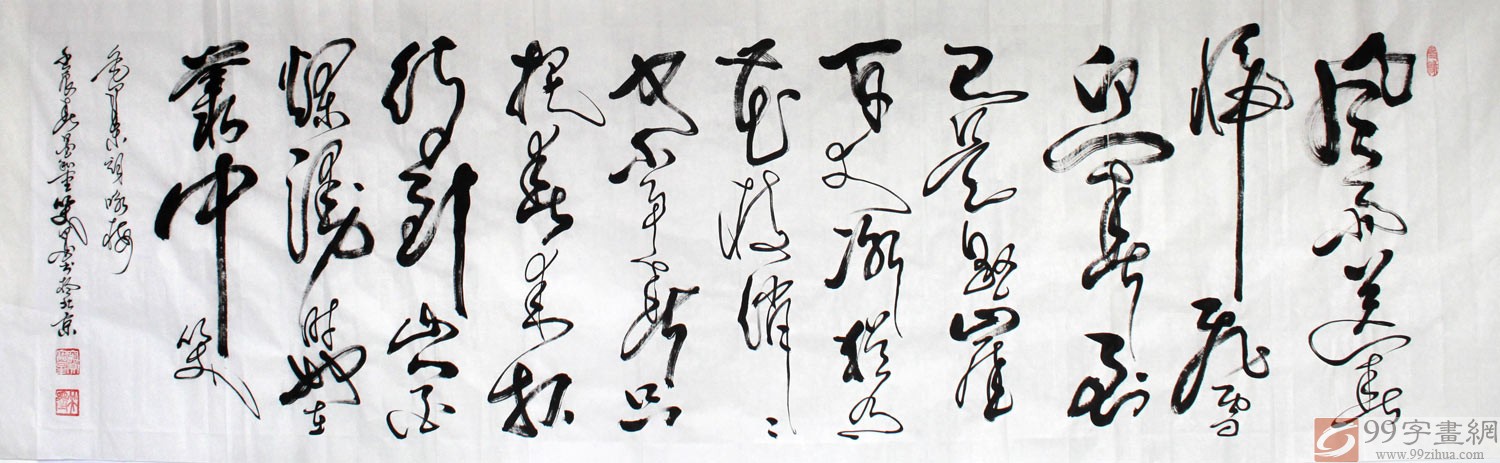 风雨送春
歸飛雪
迎春到
已是懸崖
百丈冰猶有
花枝俏〻
也不争春只
把春来报
待到山花
爛漫时她在
叢中笑
词咏梅
壬辰春书於北京
99字畫網
www.99zihua.com